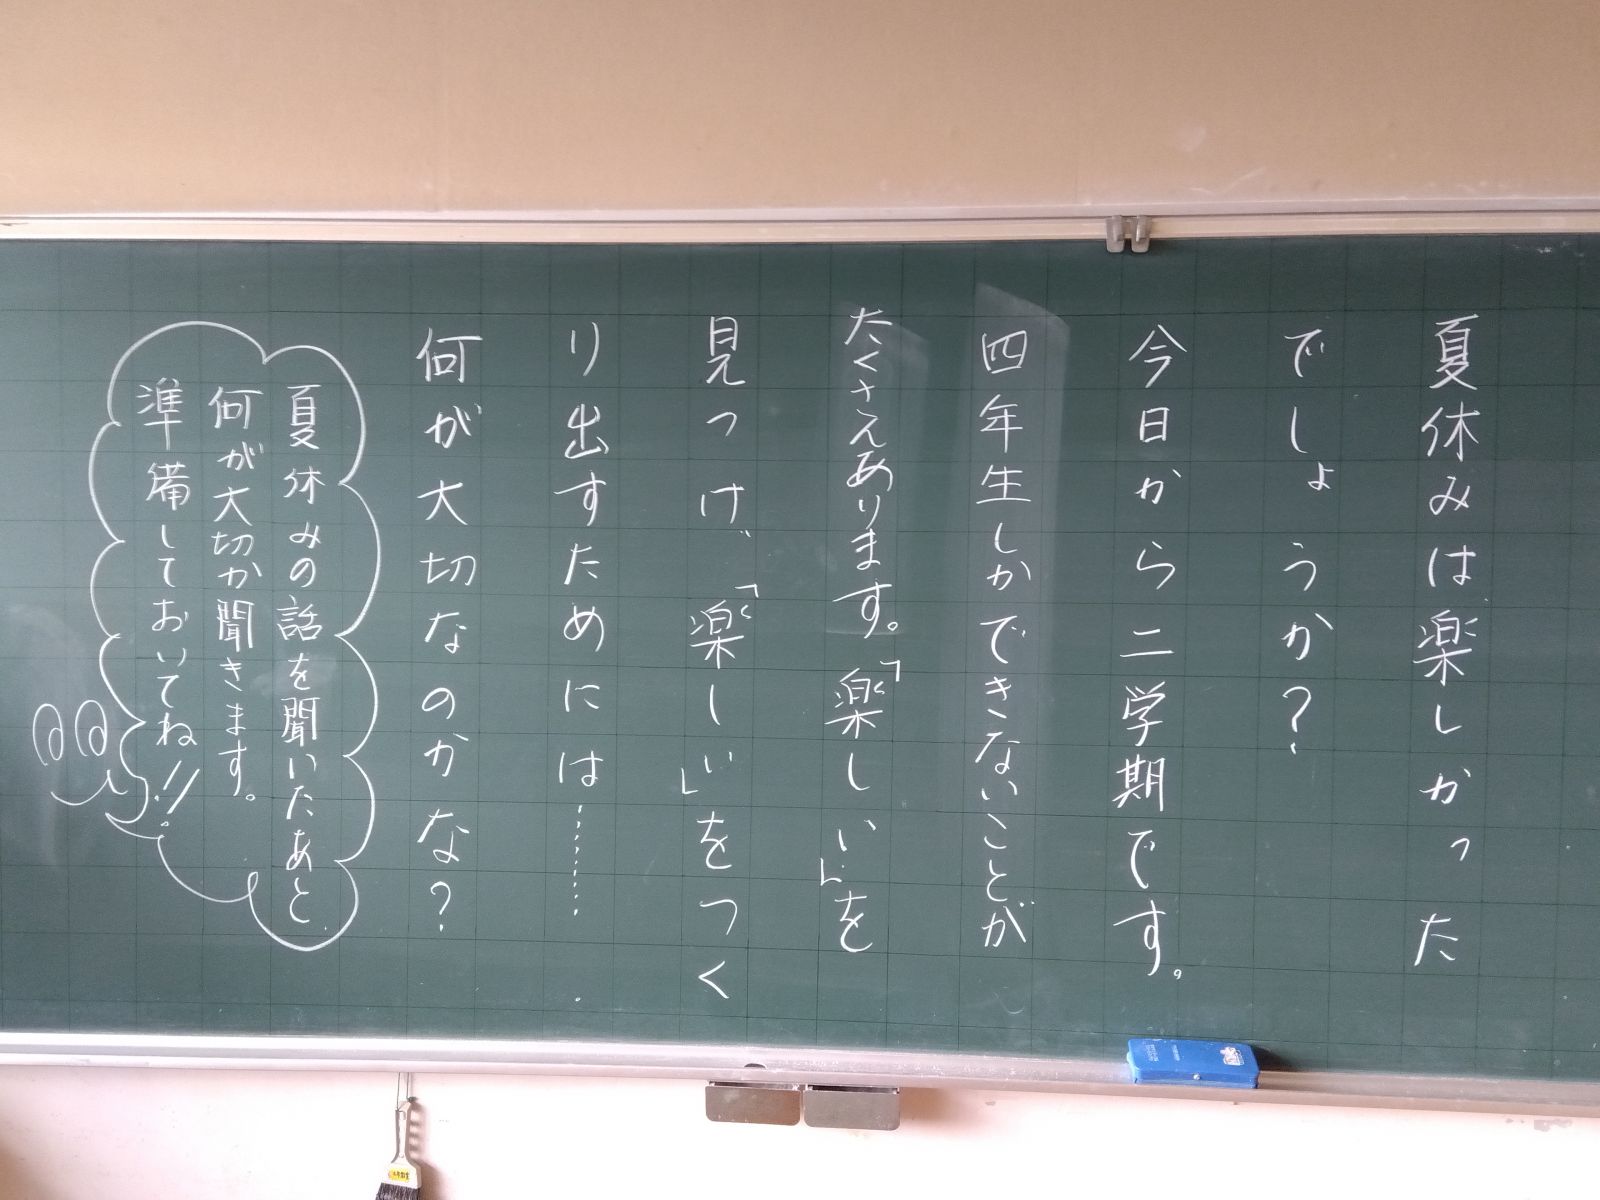 夏休みは楽しかった
でしょうか?
今日から二学期です。
四年生しかできないことが
たくさんあります。「楽しい」を
見つけ、「楽しい」をつく
り出すためには………
何が大切なのかな?
夏休みの話を聞いたあと
何が大切か聞きます。
準備しておいてね!!